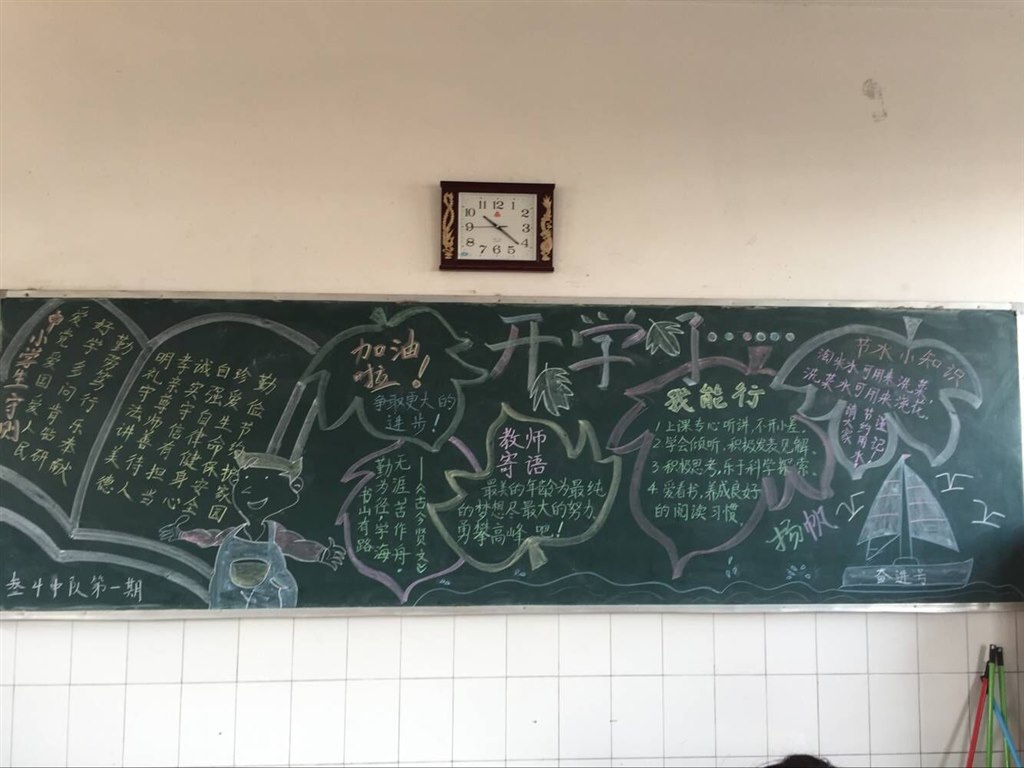 11 12 1
10 2
9 3
8 4
7 6 5
中小学生守则
爱党爱国爱人民
好学多问肯钻研
勤劳笃行乐奉献
明礼守法讲美德
孝亲尊师善待人
诚实守信有担当
自强自律健身心
珍爱生命保安全
勤俭节约护家园
叁4中队第一期
加油
啦!
争取更大的
进步!
开学了……
书山有路
勤为径学海
无涯苦作舟
——《古今贤文》
教师
寄语
最美的年龄为最纯
的梦想尽最大的努力
勇攀高峰吧!
我能行
1上课专心听讲,不开小差。
2学会倾听,积极发表见解。
3积极思考,乐于科学探索。
4爱看书,养成良好
的阅读习惯。
节水小知识
淘米水可用来洗菜,
洗菜水可用来浇花。
节约用水
请大家
扬帆
奋进号